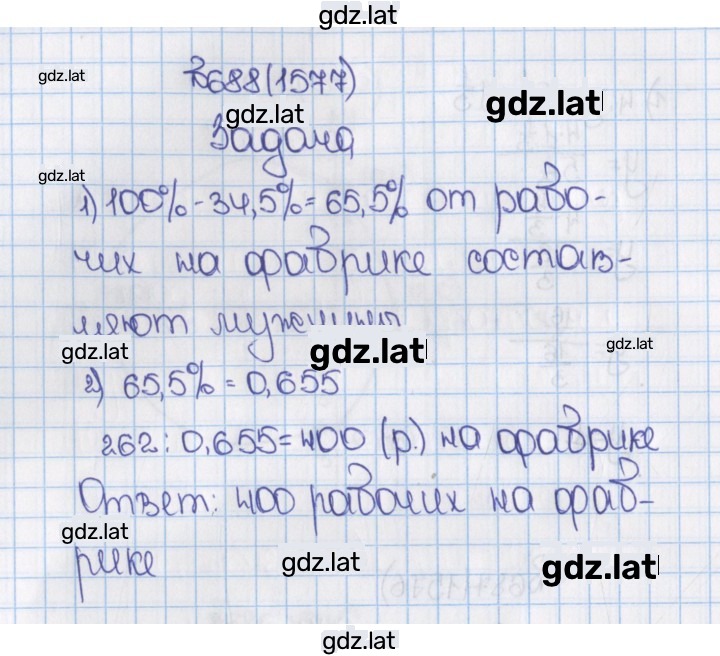 gdz.lat
gdz.lat
№688(1577)
gdz.lat
gdz.lat
Задача
gdz.lat
1) 100% - 34,5% = 65,5% от рабо-
чих на фабрике состав-
ляют мужчины
gdz.lat
gdz.lat
gdz.lat
2) 65,5% = 0,655
262 : 0,655 = 400 (р.) на фабрике
Ответ: 400 рабочих на фаб-
gdz.lat
рике
gdz.lat
gdz.lat
gdz.lat